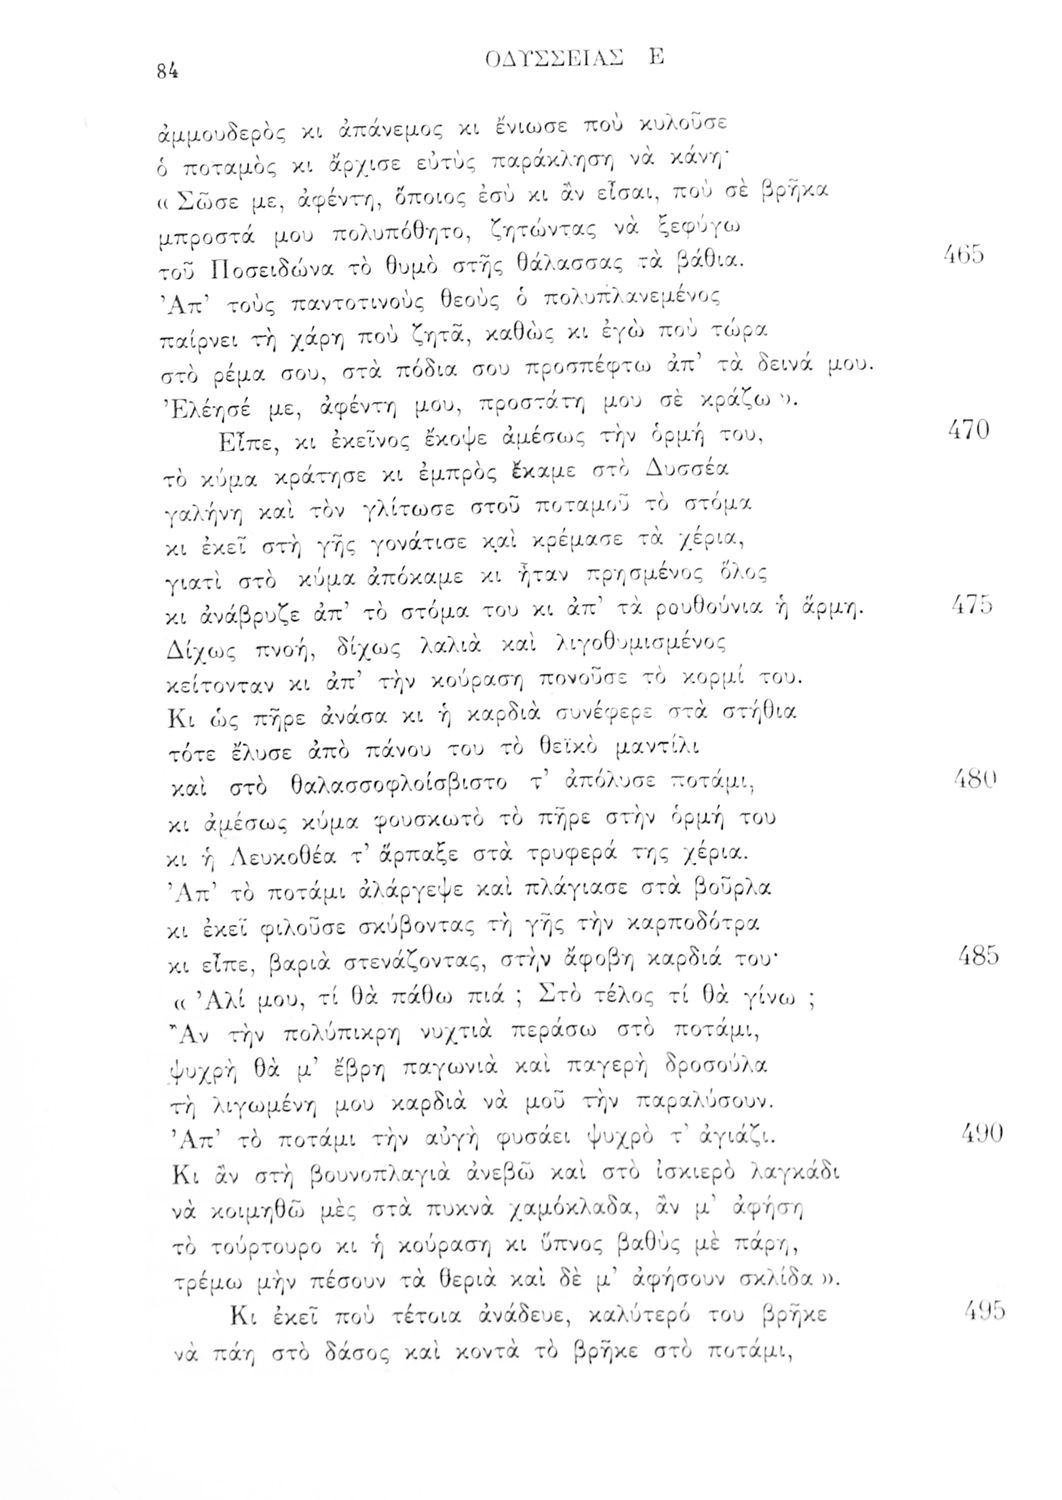 84
ΟΔΥΣΣΕΙΑΣ Ε
ἀμμουδερὸς κι ἀπάνεμος κι ἔνιωσε ποὺ κυλοῦσε
ὁ ποταμὸς κι ἄρχισε εὐτὺς παράκληση νὰ κάνη·
« Σῶσε με, ἀφέντη, ὅποιος ἐσὺ κι ἂν εἶσαι, ποὺ σὲ βρῆκα
μπροστά μου πολυπόθητο, ζητώντας νὰ ξεφύγω
τοῦ Ποσειδώνα τὸ θυμὸ στῆς θάλασσας τὰ βάθια. 465
Ἀπ’ τοὺς παντοτινοὺς θεοὺς ὁ πολυπλανεμένος
παίρνει τὴ χάρη ποὺ ζητᾶ, καθὼς κι ἐγὼ ποὺ τώρα
στὸ ρέμα σου, στὰ πόδια σου προσπέφτω ἀπ’ τὰ δεινά μου.
Ἐλέησέ με, ἀφέντη μου, προστάτη μου σὲ κράζω ».
Εἶπε, κι ἐκεῖνος ἔκοψε ἀμέσως τὴν ὁρμή του, 470
τὸ κύμα κράτησε κι ἐμπρὸς ἔκαμε στὸ Δυσσέα
γαλήνη καὶ τὸν γλίτωσε στοῦ ποταμοῦ τὸ στόμα
κι ἐκεῖ στὴ γῆς γονάτισε καὶ κρέμασε τὰ χέρια,
γιατὶ στὸ κύμα ἀπόκαμε κι ἦταν πρησμένος ὅλος
κι ἀνάβρυζε ἀπ’ τὸ στόμα του κι ἀπ’ τὰ ρουθούνια ἡ ἅρμη. 475
Δίχως πνοή, δίχως λαλιὰ καὶ λιγοθυμισμένος
κείτονταν κι ἀπ’ τὴν κούραση πονοῦσε τὸ κορμί του.
Κι ὡς πῆρε ἀνάσα κι ἡ καρδιὰ συνέφερε στὰ στήθια
τότε ἔλυσε ἀπὸ πάνου του τὸ θεϊκὸ μαντίλι
καὶ στὸ θαλασσοφλοίσβιστο τ’ ἀπόλυσε ποτάμι, 480
κι ἀμέσως κύμα φουσκωτὸ τὸ πῆρε στὴν ὁρμή του
κι ἡ Λευκοθέα τ’ ἅρπαξε στὰ τρυφερά της χέρια.
Ἀπ’ τὸ ποτάμι ἀλάργεψε καὶ πλάγιασε στὰ βοῦρλα
κι ἐκεῖ φιλοῦσε σκύβοντας τὴ γῆς τὴν καρποδότρα
κι εἶπε, βαριὰ στενάζοντας, στὴν ἄφοβη καρδιά του· 485
« Ἀλί μου, τί θὰ πάθω πιά ; Στὸ τέλος τί θὰ γίνω ;
Ἂν τὴν πολύπικρη νυχτιὰ περάσω στὸ ποτάμι,
ψυχρὴ θὰ μ’ ἔβρη παγωνιὰ καὶ παγερὴ δροσούλα
τὴ λιγωμένη μου καρδιὰ νὰ μοῦ τὴν παραλύσουν.
Ἀπ’ τὸ ποτάμι τὴν αὐγὴ φυσάει ψυχρὸ τ’ ἀγιάζι. 490
Κι ἂν στὴ βουνοπλαγιὰ ἀνεβῶ καὶ στὸ ἰσκιερὸ λαγκάδι
νὰ κοιμηθῶ μὲς στὰ πυκνὰ χαμόκλαδα, ἂν μ’ ἀφήση
τὸ τούρτουρο κι ἡ κούραση κι ὕπνος βαθὺς μὲ πάρη,
τρέμω μὴν πέσουν τὰ θεριὰ καὶ δὲ μ’ ἀφήσουν σκλίδα ».
Κι ἐκεῖ ποὺ τέτοια ἀνάδευε, καλύτερό του βρῆκε 495
νὰ πάη στὸ δάσος καὶ κοντὰ τὸ βρῆκε στὸ ποτάμι,